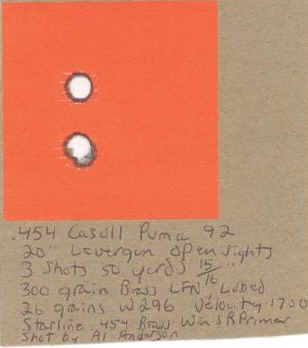 .454 Casull Puma 92
20" Levergun open sights
3 shots 50 yards 15/16"
300 grain Brass LFN Lubed
26 grains W296 Velocity 1700
Starline .454 Brass Win SR Primer
Shot by Al Anderson